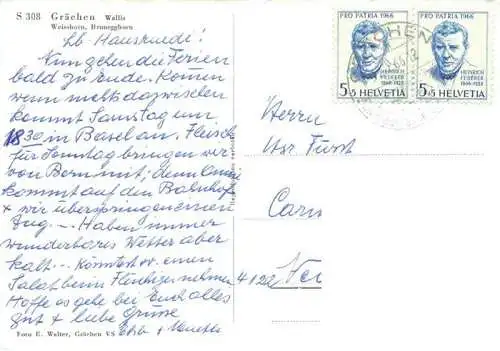 S 308 Grächen Wallis
Weisshorn, Brunegghorn
Lb Hansruedi!
Nun gehen die Ferien
bald zu Ende. Komen
wenn nichts dazwischen
kommt Samstag um
1830 in Basel an. Fleisch
für Sonntag bringen wir
von Bern mit; denn
kommt auf den Bahnhof
+ wir überspringen einen
Zug. — Haben immer
wunderbares Wetter aber
kalt... Könntest ev. einen
Salat beim nehmen
Hoffe es gehe bei Euch alles
gut + liebe Grüsse
Foto E. Walter, Grächen VS
PRO PATRIA 1966
HEINRICH
FEDERER
1866-1928
5+5 HELVETIA
PRO PATRIA 1966
HEINRICH
FEDERER
1866-1928
5+5 HELVETIA
Herrn
Urs Fürst
4122